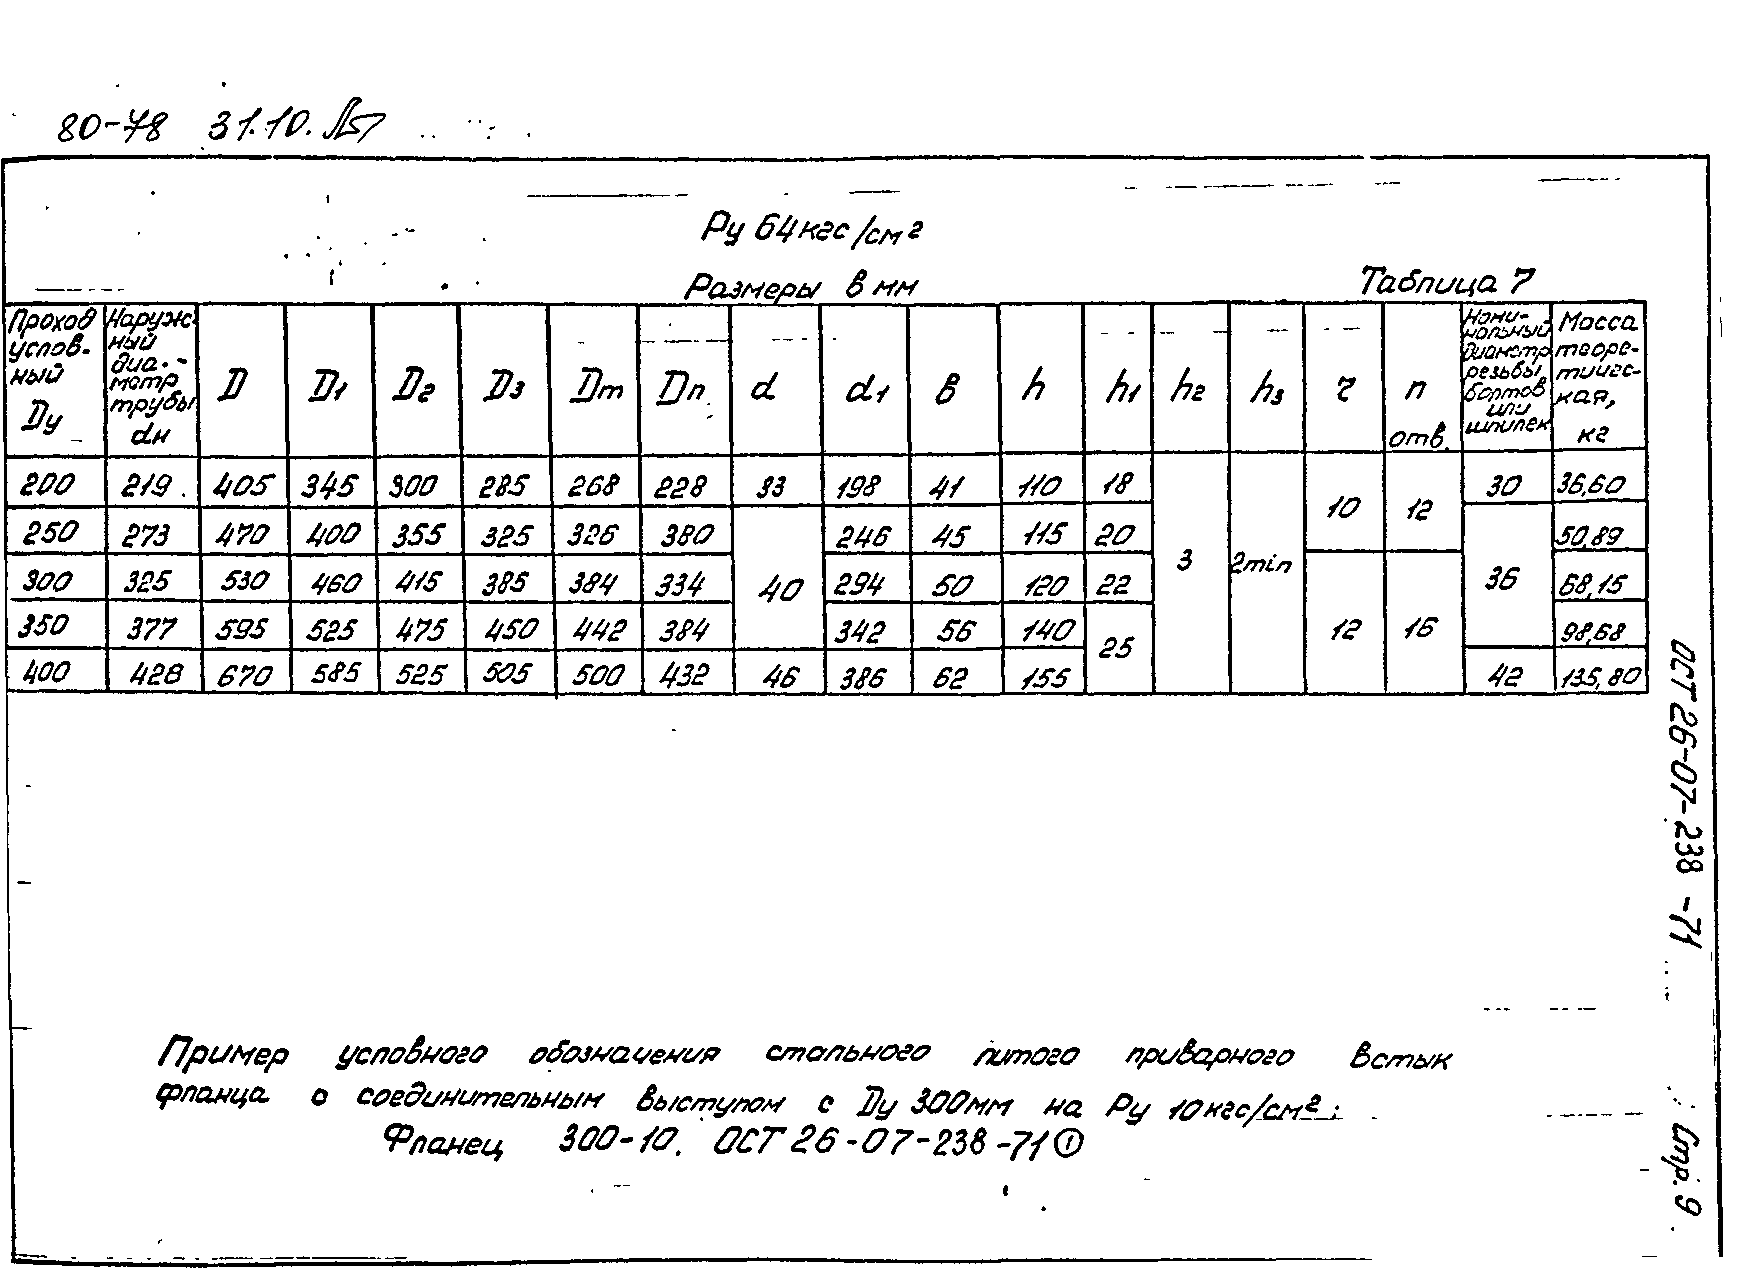 80-78 31.10.
Ру 64 кгс/см²
Размеры в мм Таблица 7
Проход условный Dу | Наружный диаметр трубы dн | D | D1 | D2 | D3 | Dm | Dп | d | d1 | в | h | h1 | h2 | h3 | r | n отв. | Номинальный диаметр резьбы болтов или шпилек | Масса теоретическая, кг
200 | 219 | 405 | 345 | 300 | 285 | 268 | 228 | 33 | 198 | 41 | 110 | 18 | 3 | 2min | 10 | 12 | 30 | 36,60
250 | 273 | 470 | 400 | 355 | 325 | 326 | 380 | 40 | 246 | 45 | 115 | 20 | 36 | 50,89
300 | 325 | 530 | 460 | 415 | 385 | 384 | 334 | 294 | 50 | 120 | 22 | 12 | 16 | 68,15
350 | 377 | 595 | 525 | 475 | 450 | 442 | 384 | 342 | 56 | 140 | 25 | 98,68
400 | 428 | 670 | 585 | 525 | 505 | 500 | 432 | 46 | 386 | 62 | 155 | 42 | 135,80
Пример условного обозначения стального литого приварного встык
фланца с соединительным выступом с Dу 300мм на Ру 10кгс/см²:
Фланец 300-10. ОСТ 26-07-238-71 ①
ОСТ 26-07-238-71
Стр. 9